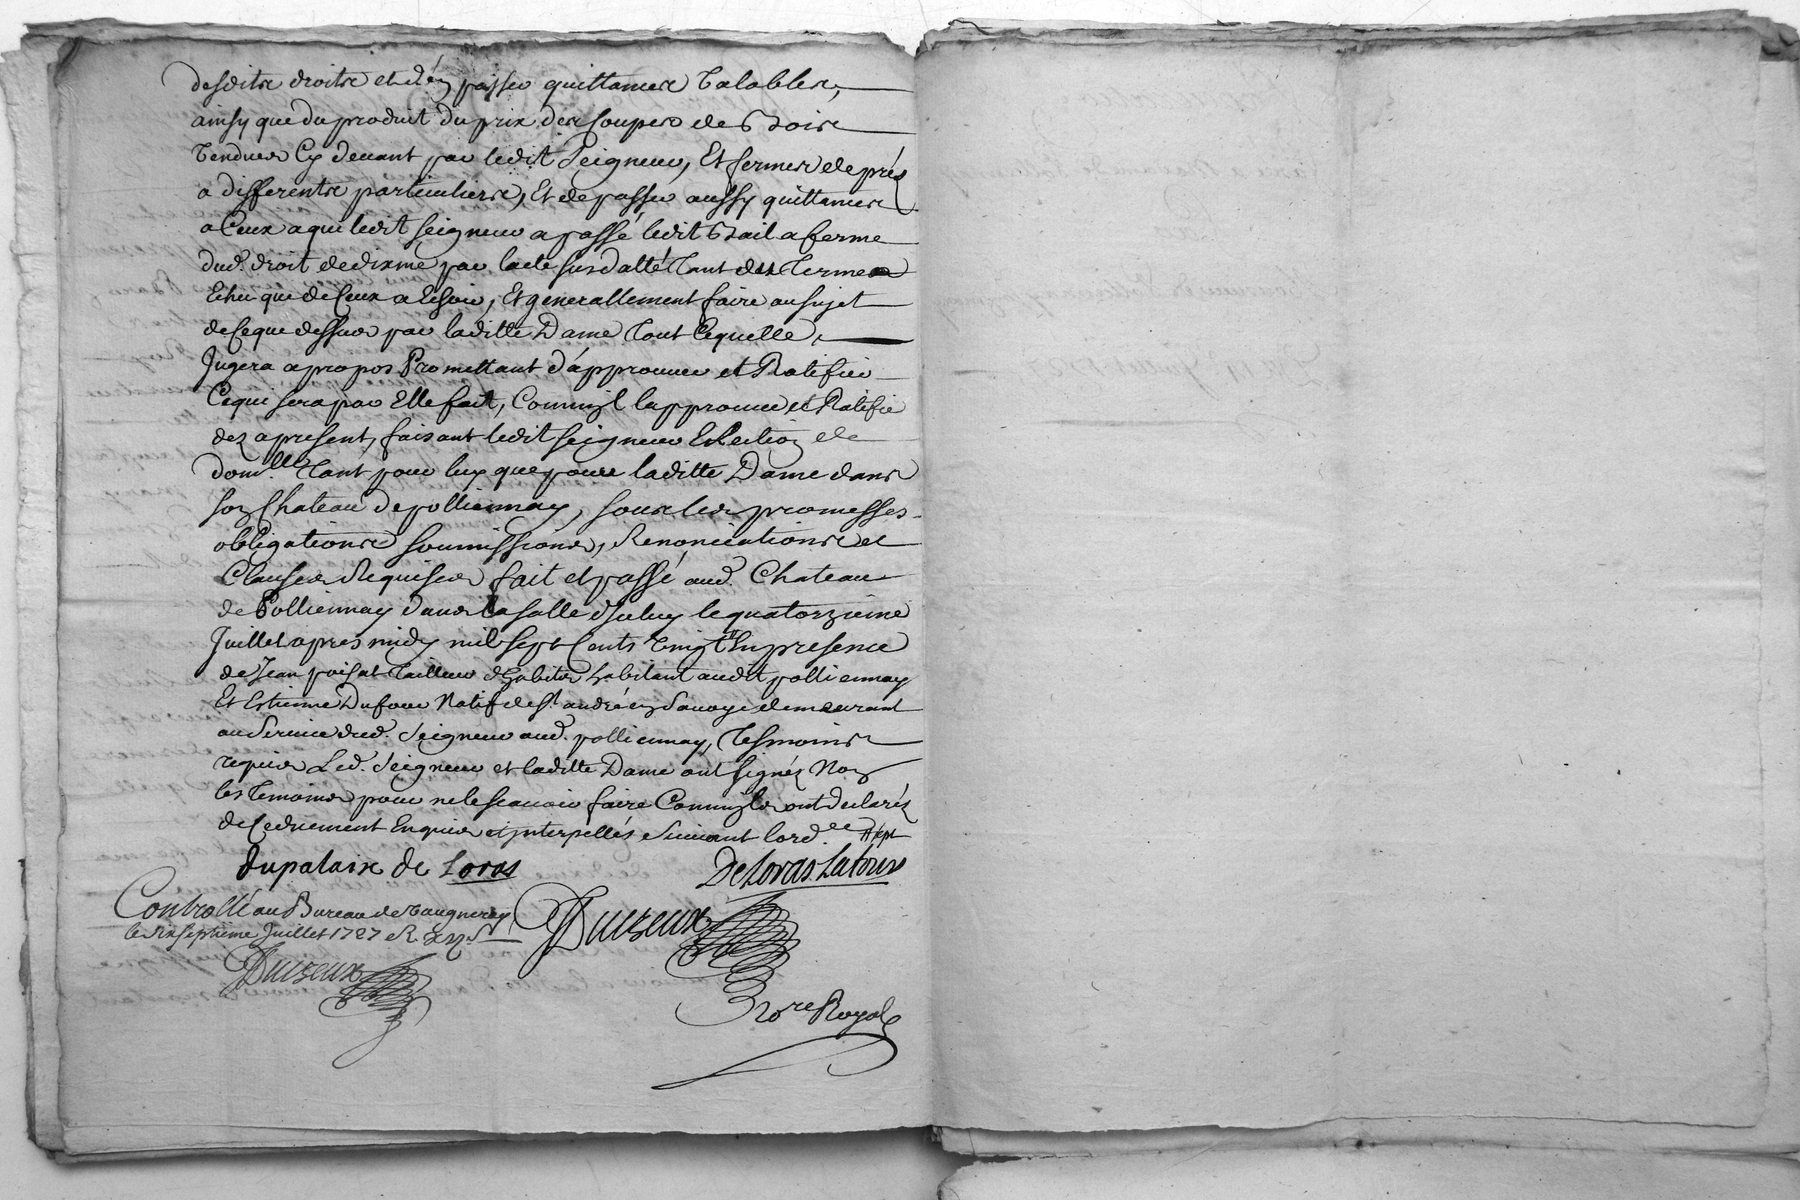 desdits droits et d'en passer quittances Valables,
ainsy que du produit du prix des Coupes de Bois
Vendues Cy devant par ledit Seigneur, Et fermes de prés
a differents particuliers, Et de passer aussy quittances
a Ceux a qui ledit seigneur a passé ledit Bail a ferme
dud. droit de dixme par lacte susdatté Tant des Termes
Echu que de Ceux a Echoir, Et generallement faire au sujet
de Ceque dessus par laditte Dame Tout Cequelle
Jugera apropos Promettant d'approuver et Ratifier
Cequi sera par Elle fait, Commil lapprouve et Ratifie
dez apresent, faisant ledit seigneur Eslection de
domlle Tant pour luy que pour laditte Dame dans
son Chateau de pollionnay, sous les promesses
obligations soumissions, Renonciations et
Clauses Requises fait et passé aud. Chateau
de Pollionnay dans la salle diceluy le quatorzieme
Juillet apres midy mil sept Cents Vingt sept En presence
de Jean poisat Tailleur d'habits habitant audit pollionnay
Et Estienne Dufour Natif de St andré en Savoye demeurant
au Service dud. Seigneur aud. pollionnay, Tesmoins
requis Led. Seigneur et laditte Dame ont signés Non
les Temoins pour ne le scavoir faire Commils ont declarés
de Ce duement Enquis et Interpellés Suivant lord.ce
dupalais de Loras DeLoras Latour
Controllé au Bureau de Vaugneray Duizeux
le dix septieme Juillet 1727 R.
Duizeux
No.re Royal